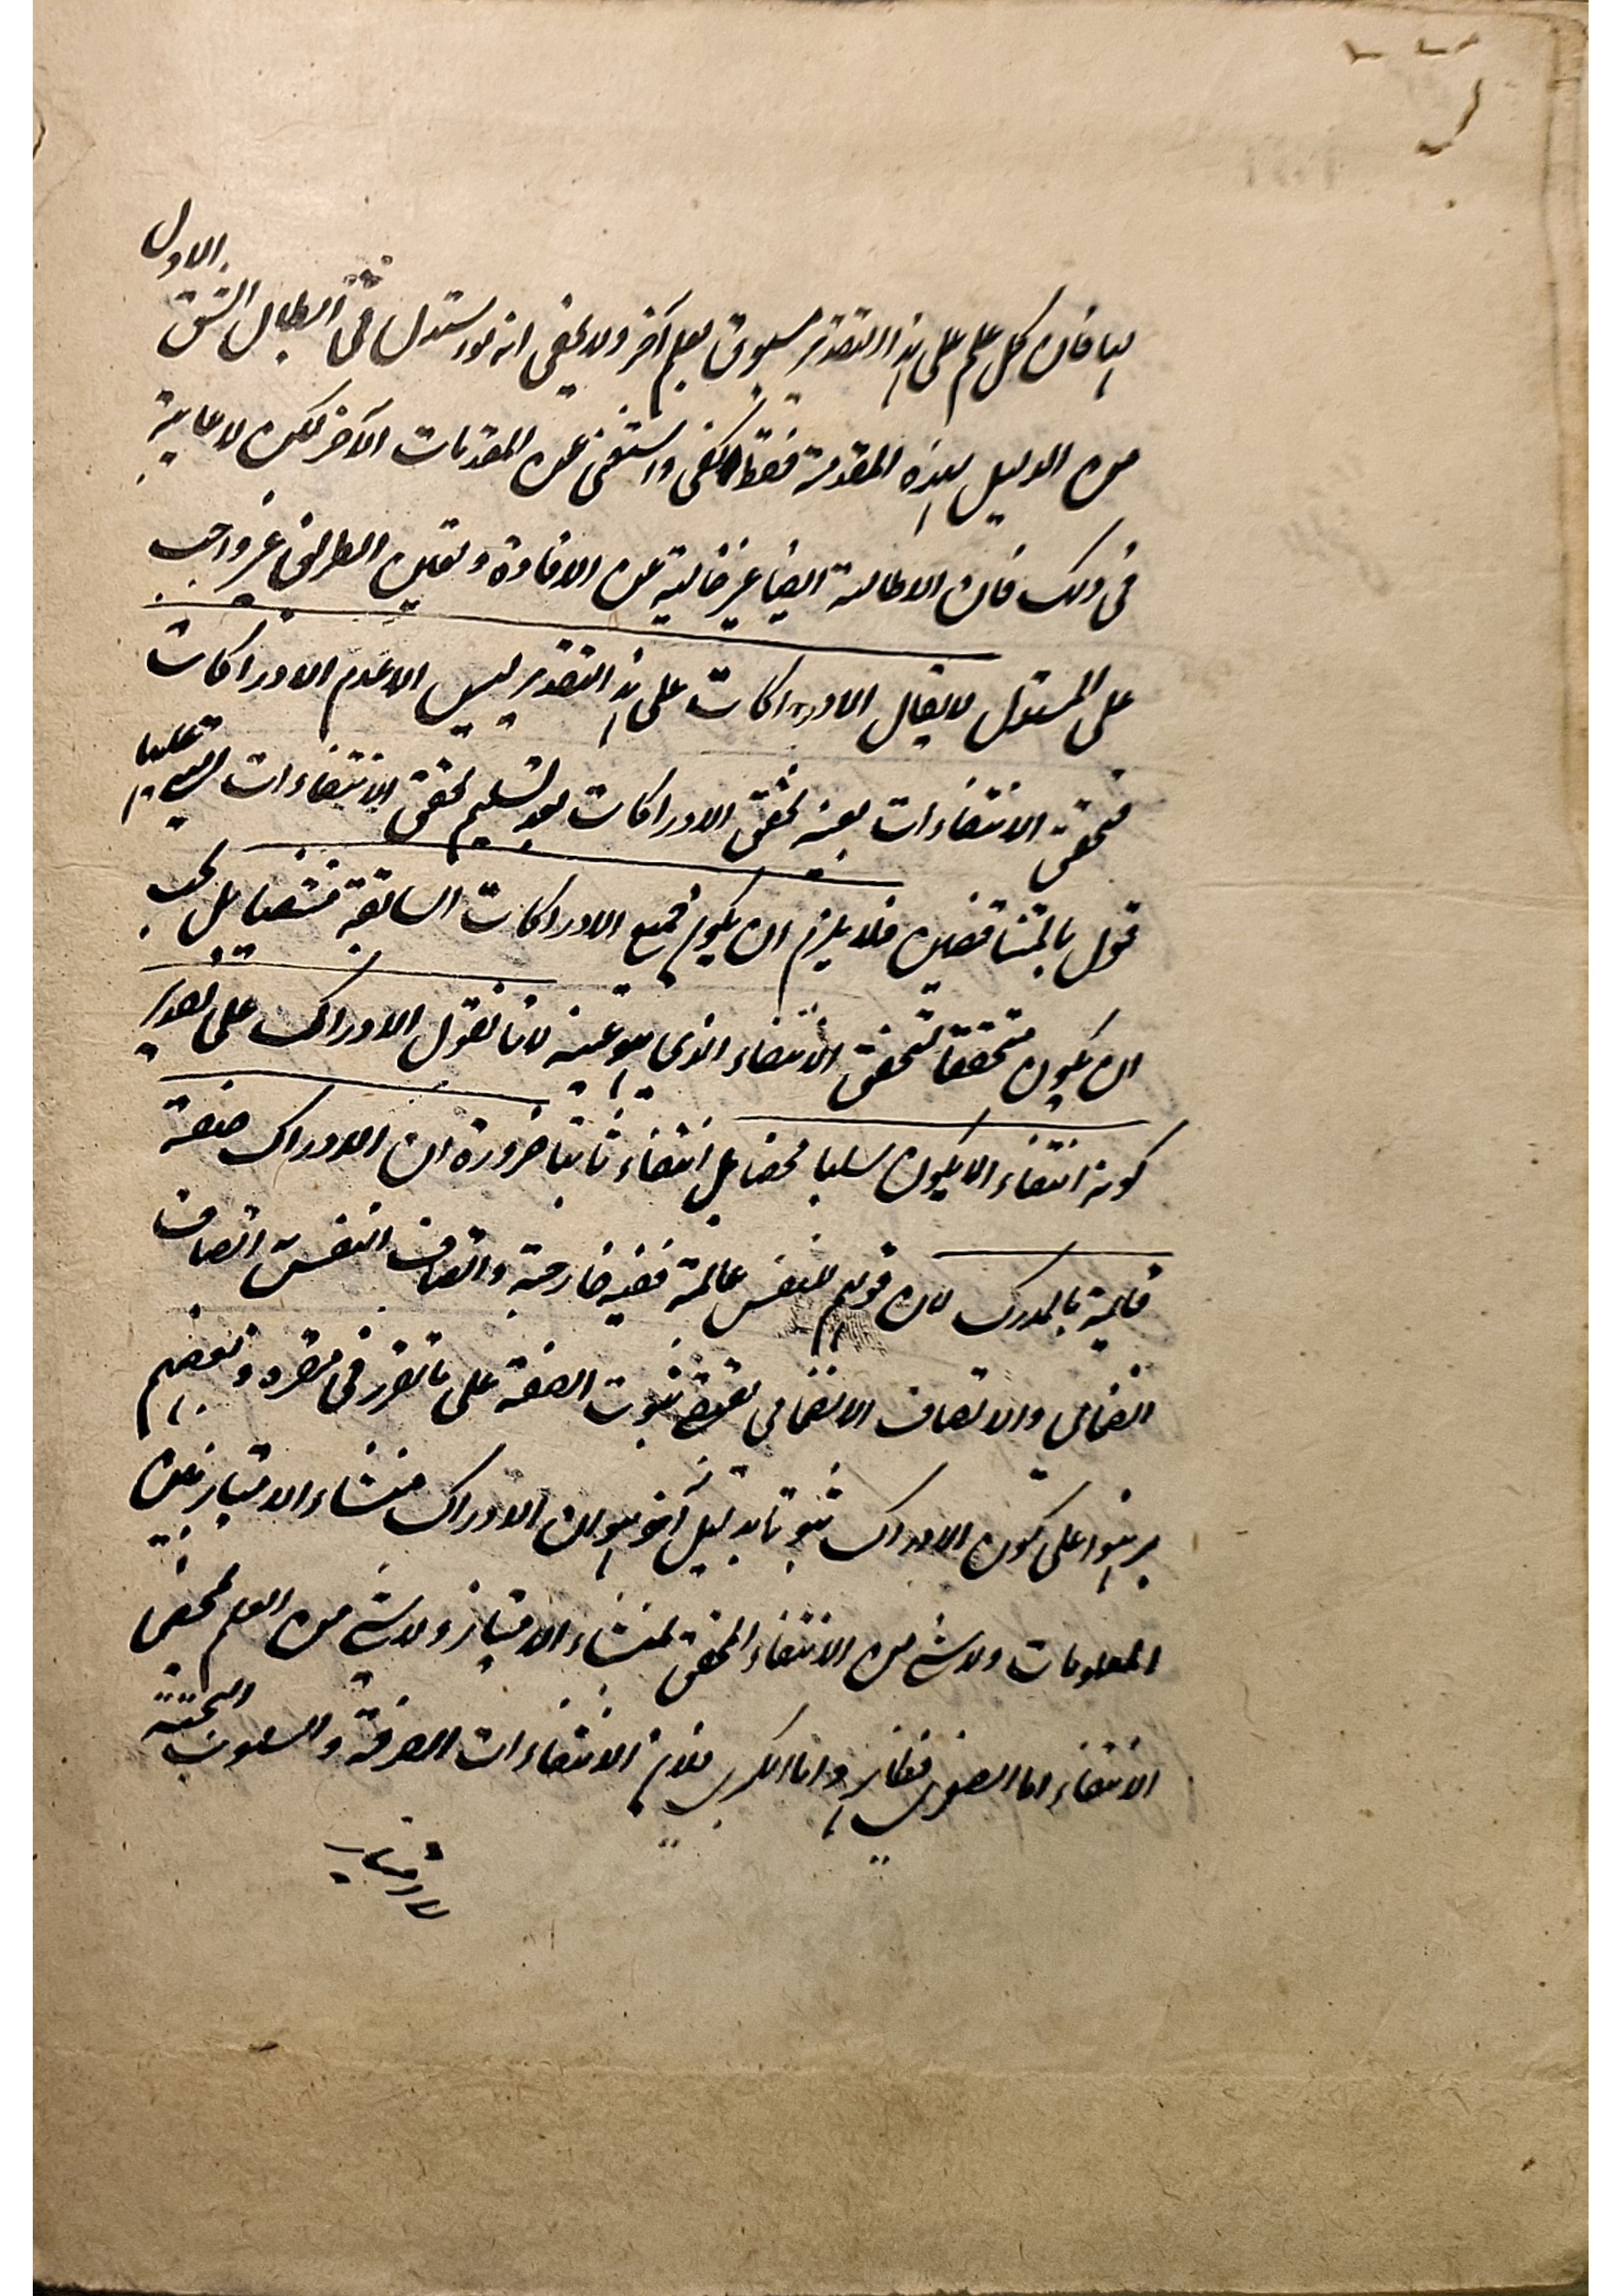 لها فان كل علم على هذا التقدير مسبوق بعلم آخر ولا يخفى انه لو استدل فى ابطال الشق الاول
من الدليل بهذه المقدمة فقط لكفى واستغنى عن المقدمات الآخر لكن لا عايبة
فى ذلك فان الاطالة ايضا غير خالية عن الافادة وتعيين الطريق غير واجب
على المستدل لا يقال الادراكات على هذا التقدير ليس الا عدم الادراكات
فتحقق الانتفاءات بعينه تحقق الادراكات بعد تسليم تحقق الانتفاءات عليها
قول بالمتناقضين فلا يلزم ان يكون جميع الادراكات السابقة منتفيا بل يجب
ان يكون متحققا لتحقق الانتفاء الذى هو عينه لانا نقول الادراك على تقدير
كونه انتفاء لا يكون سلبا محضا بل انتفاء ثابتا ضرورة ان الادراك صفة
قايمة بالمدرك لان قولهم النفس عالمة قضية خارجية واتصاف النفس اتصاف
انضمامى والاتصاف الانضمامى ثبوت الصفة على ما تقرر فى مقره وبعضهم
برهنوا على كون الادراك ثبوتيا بدليل آخر هو ان الادراك منشاء الامتياز بين
المعلومات ولا شىء من الانتفاء المحض لمنشاء الامتياز ولا شىء من العلم بمحض
الانتفاء اما الصغرى فظاهر واما الكبرى فلان الانتفاءات الصرفة والسلوب البحتة
لا امتياز